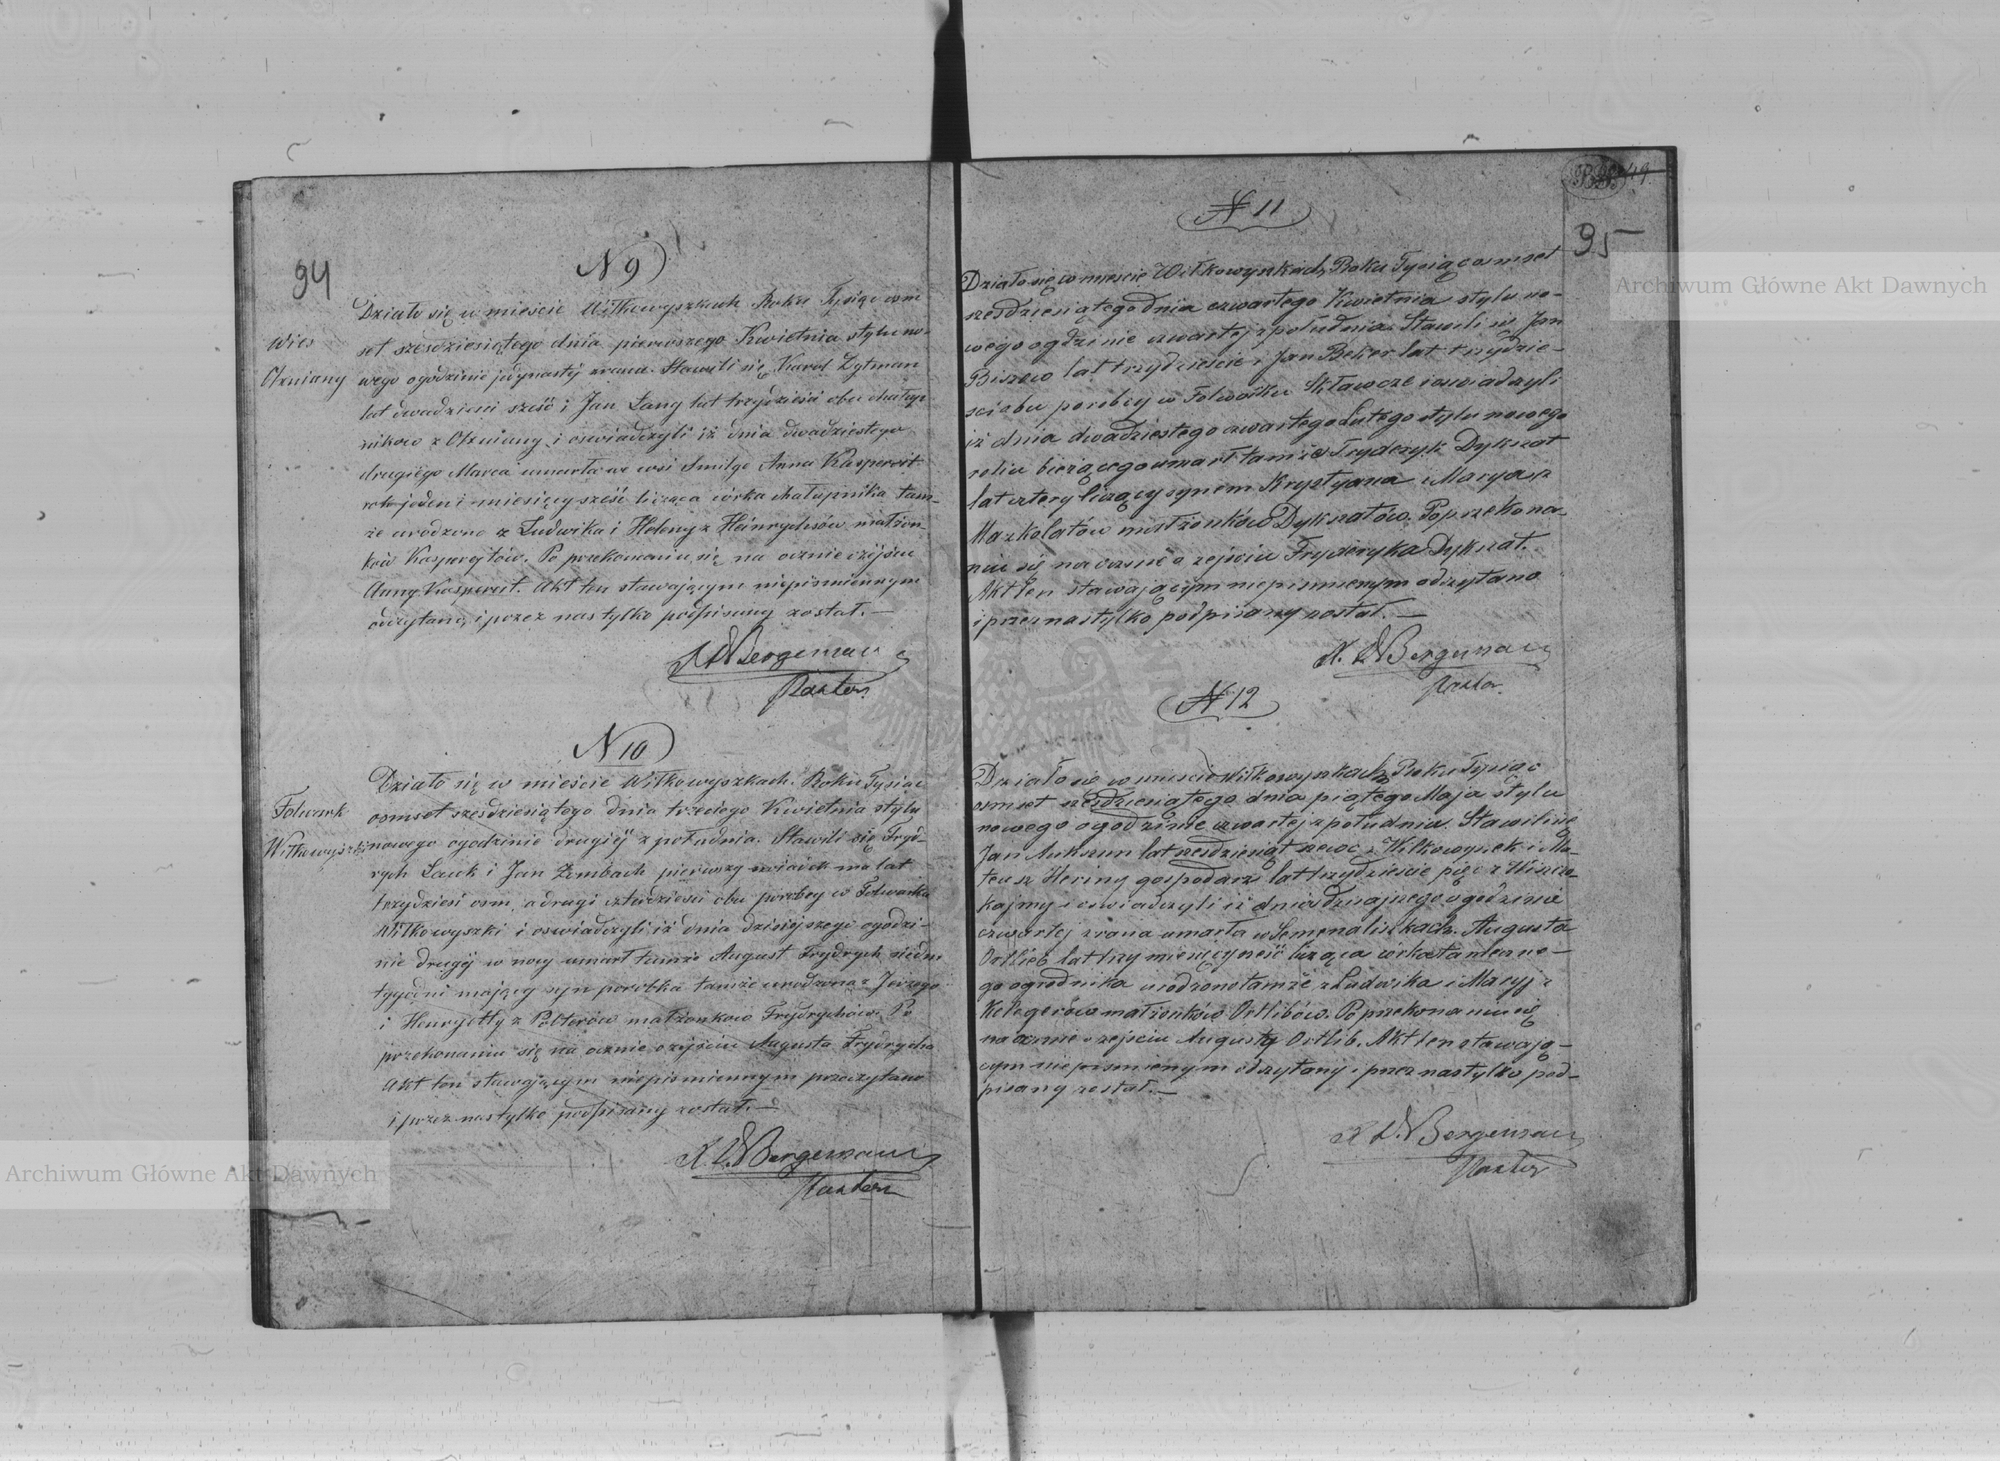 94
N 9
Wieś
Ożniany
Działo się w mieście Wiłkowyszkach Roku Tysiąc osm
set sześdziesiątego dnia pierwszego Kwietnia stylu no-
wego ogodzinie jedynastej zrana. Stawili się Karol Dytman
lat dwadzieści sześć i Jan Lang lat trzydzieści obu chałup-
nikow z Ożniany i oswiadczyli iż dnia dwadziestego
drugiego Marca umarła we wsi Smilge Anna Kaspereit
rok jeden i miesięcy sześć licząca córka chałupnika tam-
że urodzona z Ludwika i Heleny z Heinrychsów małżon-
ków Kaspereitów. Po przekonaniu się na ocznie o zejściu
Anny Kaspereit. Akt ten stawającym niepismiennym
odczytano, i przez nas tylko podpisany został.—
X. L. Bergeman
Pastor.
N 10
Folwark
Wiłkowyszki
Działo się w mieście Wiłkowyszkach. Roku Tysiąc
osmset sześdziesiątego dnia trzeciego Kwietnia stylu
nowego ogodzinie drugiej z południa. Stawili się Fryd-
rych Lauk i Jan Zembach pierwszy wiaiek ma lat
trzydzieści osm, a drugi czterdzieści obu parobcy w Folwarku
Wiłkowyszki i oswiadczyli iż dnia dzisiejszego ogodzi-
nie drugiej w nocy umarł tamże August Frydrych siedm
tygodni mający syn parobka tamże urodzona z Jerzego
i Henryetty z Polterów małżonkow Frydrychów. Po
przekonaniu się na ocznie o zejściu Augusta Frydrycha
Akt ten stawającym niepismiennym przeczytano
i przez nas tylko podpisany został.—
X. L. Bergeman
Pastor
49
95
N 11
Działo się w mieście Wiłkowyszkach, Roku Tysiąc osmset
sześdziesiątego dnia czwartego Kwietnia stylu no-
wego ogdzinie czwartej z południa. Stawili się Jan
Biszew lat trzydzieście i Jan Beker lat trzydzie-
ści obu parobcy w Folwarku Skławcze i oswiadczyli
iż dnia dwadziestego czwartego Lutego stylu nowego
roku bieżącego umarł tamże Fryderyk Dykszat
lat cztery liczący synem Krystyana i Maryas z
Mazkolatów małżonków Dykszatów. Po przekona-
niu się na ocznie o zejściu Fryderyka Dykszat.
Akt ten stawającym niepismienym odczytano
i przez nas tylko podpisany został.—
X. L. Bergeman
Pastor.
N 12
Działo się w mieście Wiłkowyszkach, Roku Tysiąc
osmset sześdziesiątego dnia piątego Maja stylu
nowego ogodzinie czwartej z południa. Stawili się
Jan Aukszun lat sześdziesiąt z Wiłkowyszek i Ma-
teusz Hering gospodarz lat trzydzieście pięć z
kajmy i oswiadczyli iż dnia dzisiajszego ogodzinie
czwartej zrana umarła w Semenaliszkach. Augusta
Ortlieb lat trzy miesięcy sześć licząca córka tamtesze-
go ogrodnika urodzono tamże z Ludwika i Maryj z
Kelegerów małżonków Ortlibów. Po przekonaniu się
na ocznie o zejściu Augusty Ortlib. Akt ten stawają-
cym niepismienym odczytany i przez nas tylko pod-
pisany został.—
X. L. Bergeman
Pastor
Archiwum Główne Akt Dawnych
Archiwum Główne Akt Dawnych